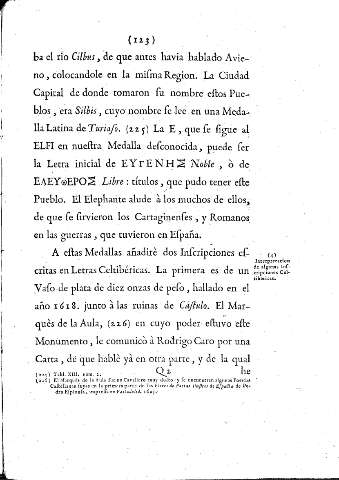 (123)
ba el rio Cilbus, de que antes havia hablado Avie-
no, colocandole en la misma Region. La Ciudad
Capital de donde tomaron su nombre estos Pue-
blos, era Silbis, cuyo nombre se lee en una Meda-
lla Latina de Turiaso. (225) La E, que se sigue al
ELFI en nuestra Medalla desconocida, puede ser
la Letra inicial de ΕΥΓΕΝΗΣ Noble, ò de
ΕΛΕΥΘΕΡΟΣ Libre: titulos, que pudo tener este
Pueblo. El Elephante alude à los muchos de ellos,
de que se sirvieron los Cartaginenses, y Romanos
en las guerras, que tuvieron en España.
A estas Medallas añadirè dos Inscripciones es-
critas en Letras Celtibéricas. La primera es de un
Vaso de plata de diez onzas de peso, hallado en el
año 1618. junto à las ruinas de Cástulo. El Mar-
quès de la Aula, (226) en cuyo poder estuvo este
Monumento, le comunicò à Rodrigo Caro por una
Carta, de que hablè yà en otra parte, y de la qual
Q2 he
Interpretacion
de algunas Ins-
cripciones Cel-
tibéricas.
(225) Tabl. XIII. num. 2.
(226) El Marquès de la Aula fue un Cavallero muy docto, y se encuentran algunas Poesias
Castellanas suyas en la primera parte de las Flores de Poetas Ilustres de España de Pe-
dro Espinosa, impressa en Valladolid. 1605.